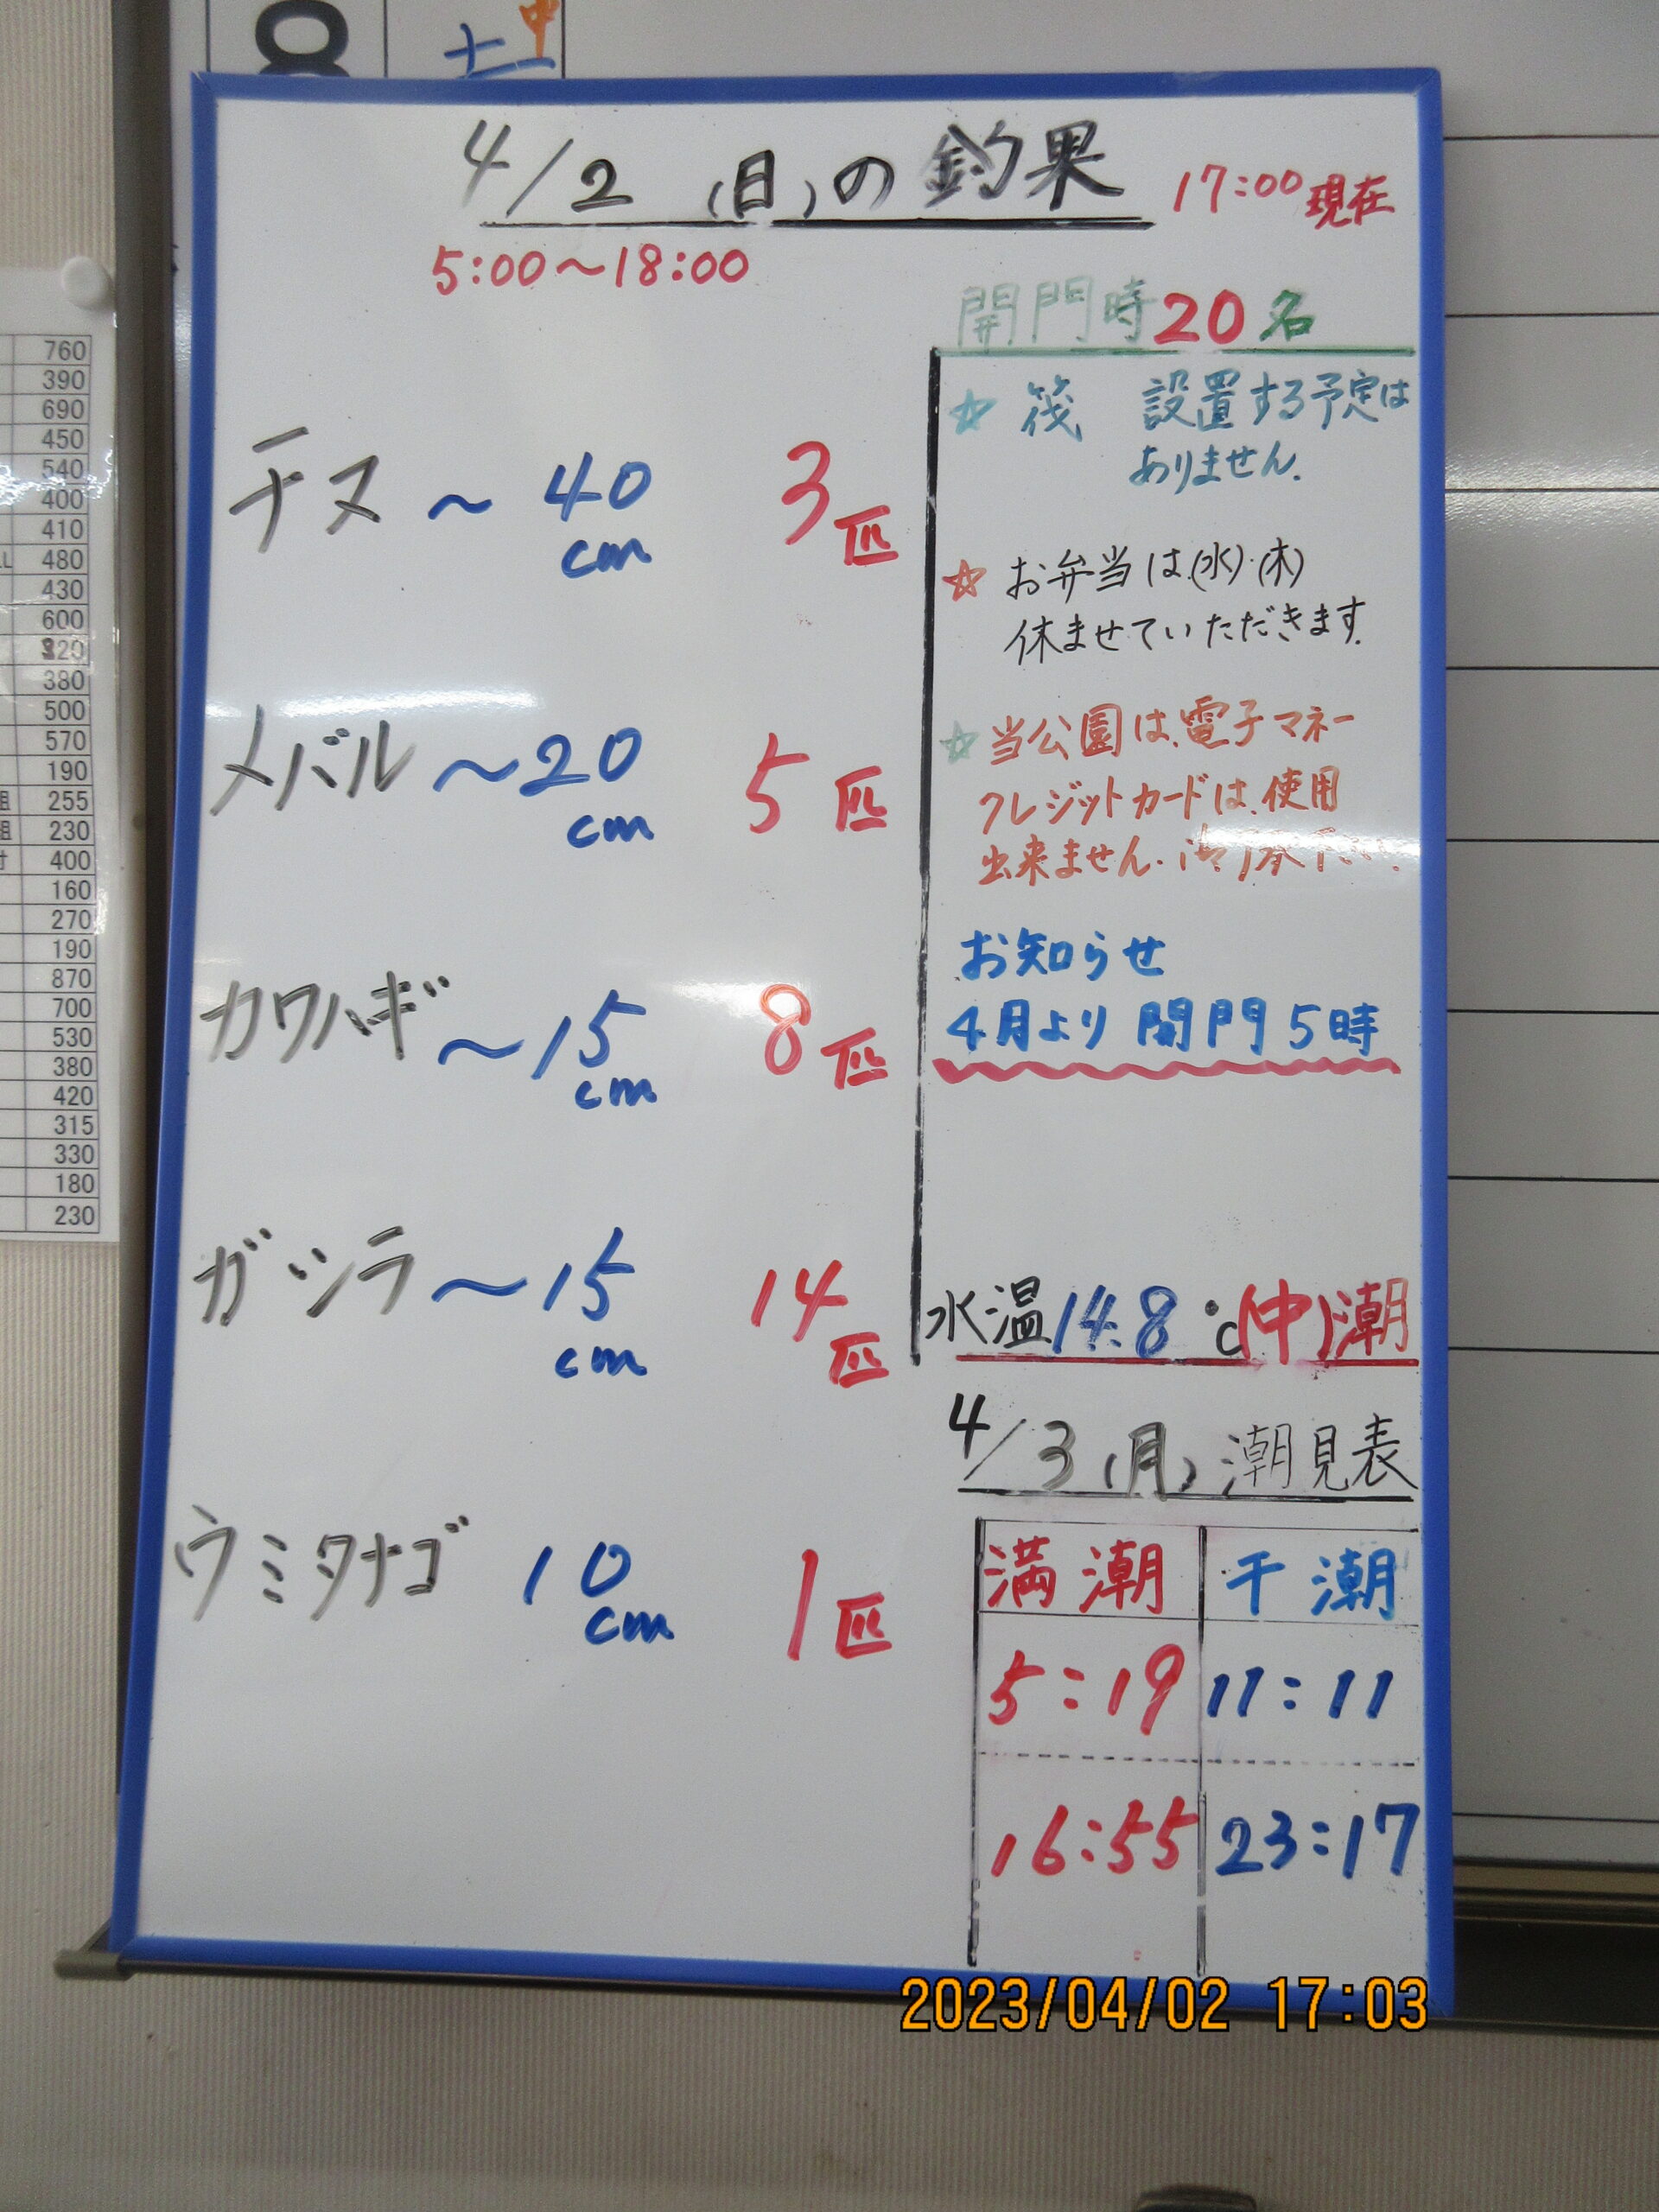 8
土
中
4/2(日)の釣果 17:00現在
5:00〜18:00
開門時20名
チヌ〜40cm 3匹
メバル〜20cm 5匹
カワハギ〜15cm 8匹
ガシラ〜15cm 14匹
ウミタナゴ 10cm 1匹
☆ 筏 設置する予定は
ありません.
☆ お弁当は(水)・(木)
休ませていただきます.
☆ 当公園は、電子マネー
クレジットカードは、使用
出来ません.
お知らせ
4月より開門5時
水温14.8℃(中)潮
4/3(月)潮見表
満潮 干潮
5:19 11:11
16:55 23:17
760
390
690
450
540
400
410
480
430
600
320
380
500
570
190
組 255
組 230
400
160
270
190
870
700
530
380
420
315
330
180
230
2023/04/02 17:03